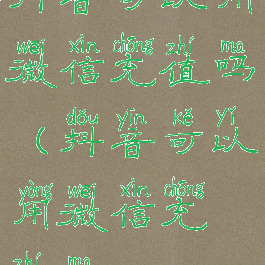 抖音可以用
wēi xìn chōng zhí ma
微信充值吗
dǒu yīn kě yǐ
（抖音可以
yòng wēi xìn chōng
用微信充
zhí ma